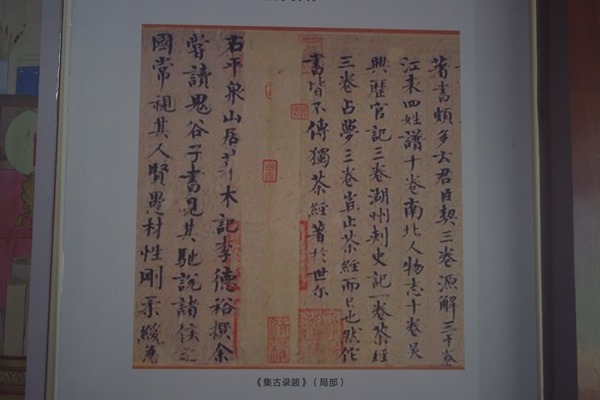 著書頗多云君臣契三卷源解三十卷
江表四姓譜十卷南北人物志十卷吳
興歷官記三卷湖州刺史記一卷茶經
三卷占夢三卷豈止茶經而已也然佗
書皆不傳獨茶經著於世尔
右平泉山居草木記李德裕撰余
嘗讀鬼谷子書見其馳說諸侯之
國常視其人賢愚材性剛柔緩急
《集古录跋》（局部）